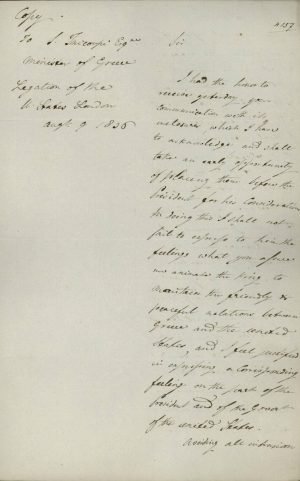 Copy
4157
To S. Tricoupi Esqre
Minister of Greece
Legation of the
U. States London
augt 9 1836
Sir
I had the honor to
receive yesterday your
communication with its
inclosures, which I have
to acknowledge and shall
take an early opportunity
of placing them before the
President for his consideration
In doing this I shall not
fail to express to him the
feelings what you assure
me animate the King, to
maintain the friendly &
peaceful relations between
Greece and the United
States, and I feel justified
in expressing a corresponding
feeling on the part of the
President and of the Governt
of the United States.
Avoiding all intrusion